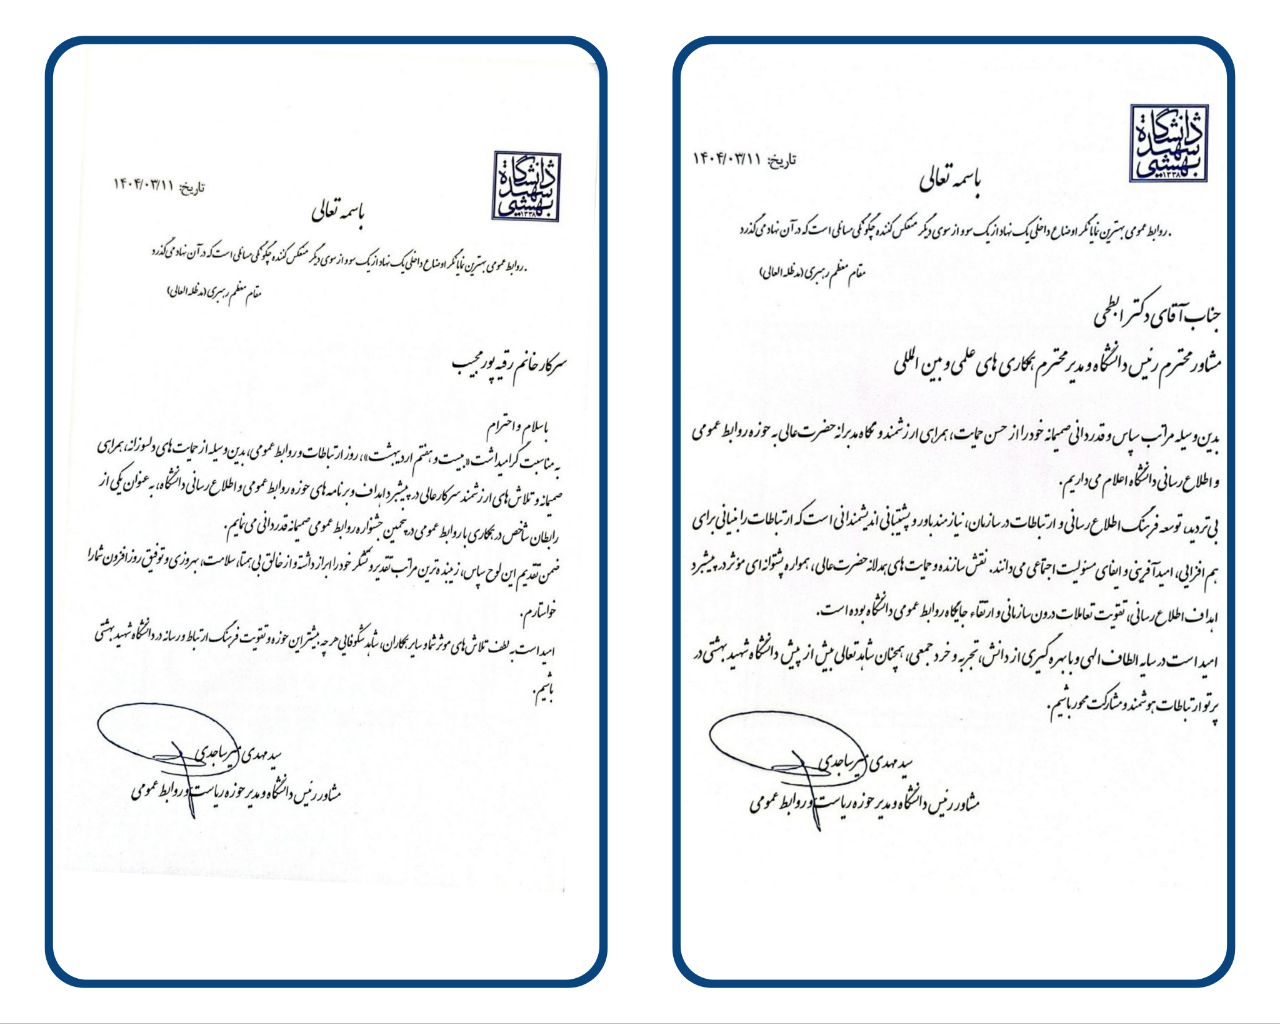 دانشگاه
شهید
بهشتی
۱۳۳۸
تاریخ: ۱۴۰۴/۰۳/۱۱
باسمه تعالی
روابط عمومی بهترین نمایانگر اوضاع داخلی یک نهاد از یک سو و از سوی دیگر منعکس کننده چگونگی مسائلی است که در آن نهاد می‌گذرد.
مقام معظم رهبری (مدظله العالی)
جناب آقای دکتر ابطحی
مشاور محترم رئیس دانشگاه و مدیر محترم همکاری های علمی و بین المللی
بدین وسیله مراتب سپاس و قدردانی صمیمانه خود را از حسن حمایت، همراهی ارزشمند و نگاه مدبرانه حضرت عالی به حوزه روابط عمومی
و اطلاع رسانی دانشگاه اعلام می داریم.
بی تردید، توسعه فرهنگ اطلاع رسانی و ارتباطات در سازمان، نیازمند باور و پشتیبانی اندیشمندانی است که ارتباطات را بنیانی برای
هم افزایی، امید آفرینی و ایفای مسئولیت اجتماعی می دانند. نقش سازنده و حمایت های همدلانه حضرت عالی، همواره پشتوانه ای مؤثر در پیشبرد
اهداف اطلاع رسانی، تقویت تعاملات درون سازمانی و ارتقاء جایگاه روابط عمومی دانشگاه بوده است.
امید است در سایه الطاف الهی و با بهره گیری از دانش، تجربه و خرد جمعی، همچنان شاهد تعالی بیش از پیش دانشگاه شهید بهشتی در
پرتو ارتباطات هوشمند و مشارکت محور باشیم.
سید مهدی میرساجدی
مشاور رئیس دانشگاه و مدیر حوزه ریاست و روابط عمومی
دانشگاه
شهید
بهشتی
۱۳۳۸
تاریخ: ۱۴۰۴/۰۳/۱۱
باسمه تعالی
روابط عمومی بهترین نمایانگر اوضاع داخلی یک نهاد از یک سو و از سوی دیگر منعکس کننده چگونگی مسائلی است که در آن نهاد می‌گذرد.
مقام معظم رهبری (مدظله العالی)
سرکار خانم رقیه پور مجیب
با سلام و احترام
به مناسبت گرامیداشت «بیست و هفتم اردیبهشت»، روز ارتباطات و روابط عمومی، بدین وسیله از حمایت های دلسوزانه، همراهی
صمیمانه و تلاش های ارزشمند سرکار عالی در پیشبرد اهداف و برنامه های حوزه روابط عمومی و اطلاع رسانی دانشگاه، به عنوان یکی از
رابطان شاخص در همکاری با روابط عمومی در پنجمین جشنواره روابط عمومی صمیمانه قدردانی می نمایم.
ضمن تقدیم این لوح سپاس، زیبنده ترین مراتب تقدیر و تشکر خود را ابراز داشته و از خالق بی همتا، سلامت، بهروزی و توفیق روز افزون شما را
خواستارم.
امید است به لطف تلاش های موثر شما و سایر همکاران، شاهد شکوفایی هرچه بیشتر این حوزه و تقویت فرهنگ ارتباط و رسانه در دانشگاه شهید بهشتی
باشیم.
سید مهدی میرساجدی
مشاور رئیس دانشگاه و مدیر حوزه ریاست و روابط عمومی